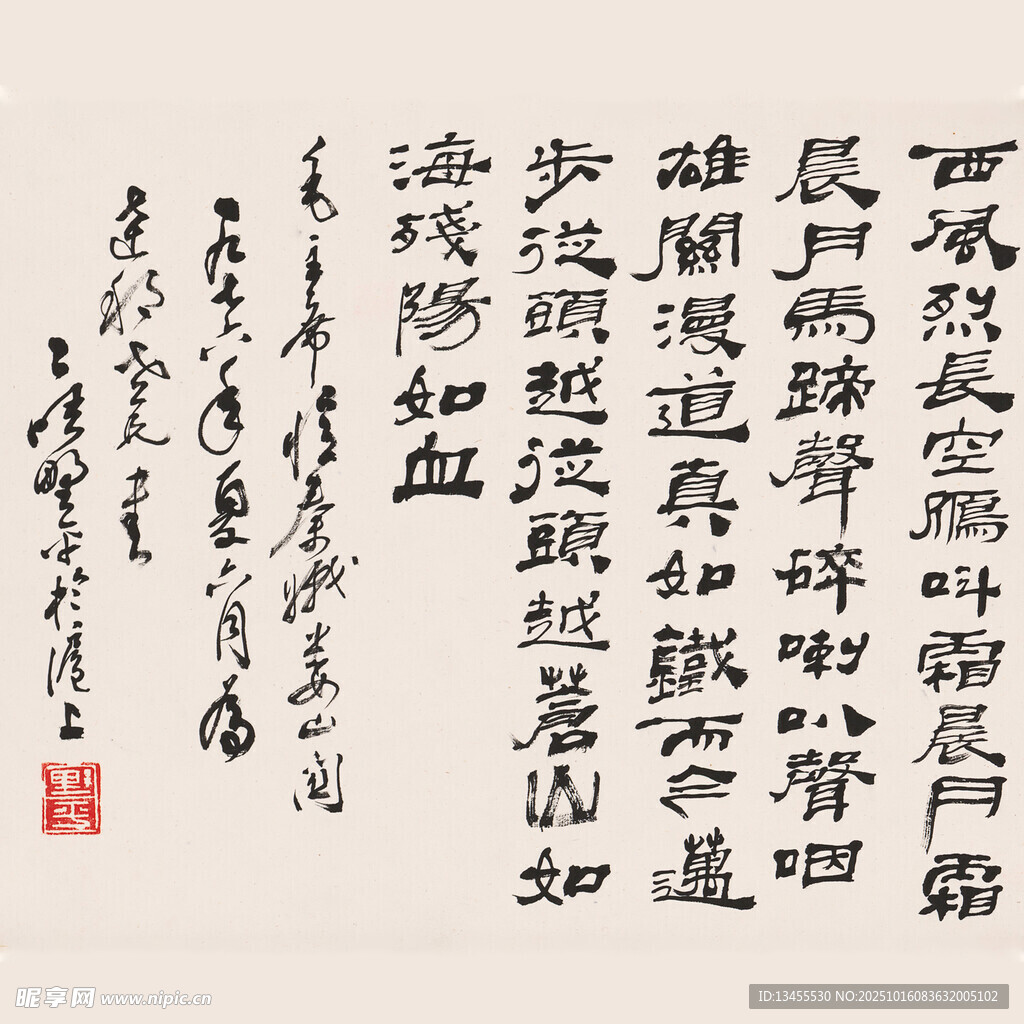 西風烈長空鴈叫霜晨月霜
晨月馬蹄聲碎喇叭聲咽
雄關漫道真如鐵而今邁
步從頭越從頭越蒼山如
海殘陽如血
毛主席憶秦娥婁山關
一九七六年夏六月為
達老兄書
野平於滬上
昵享网 www.nipic.cn
ID:13455530 NO:20251016083632005102